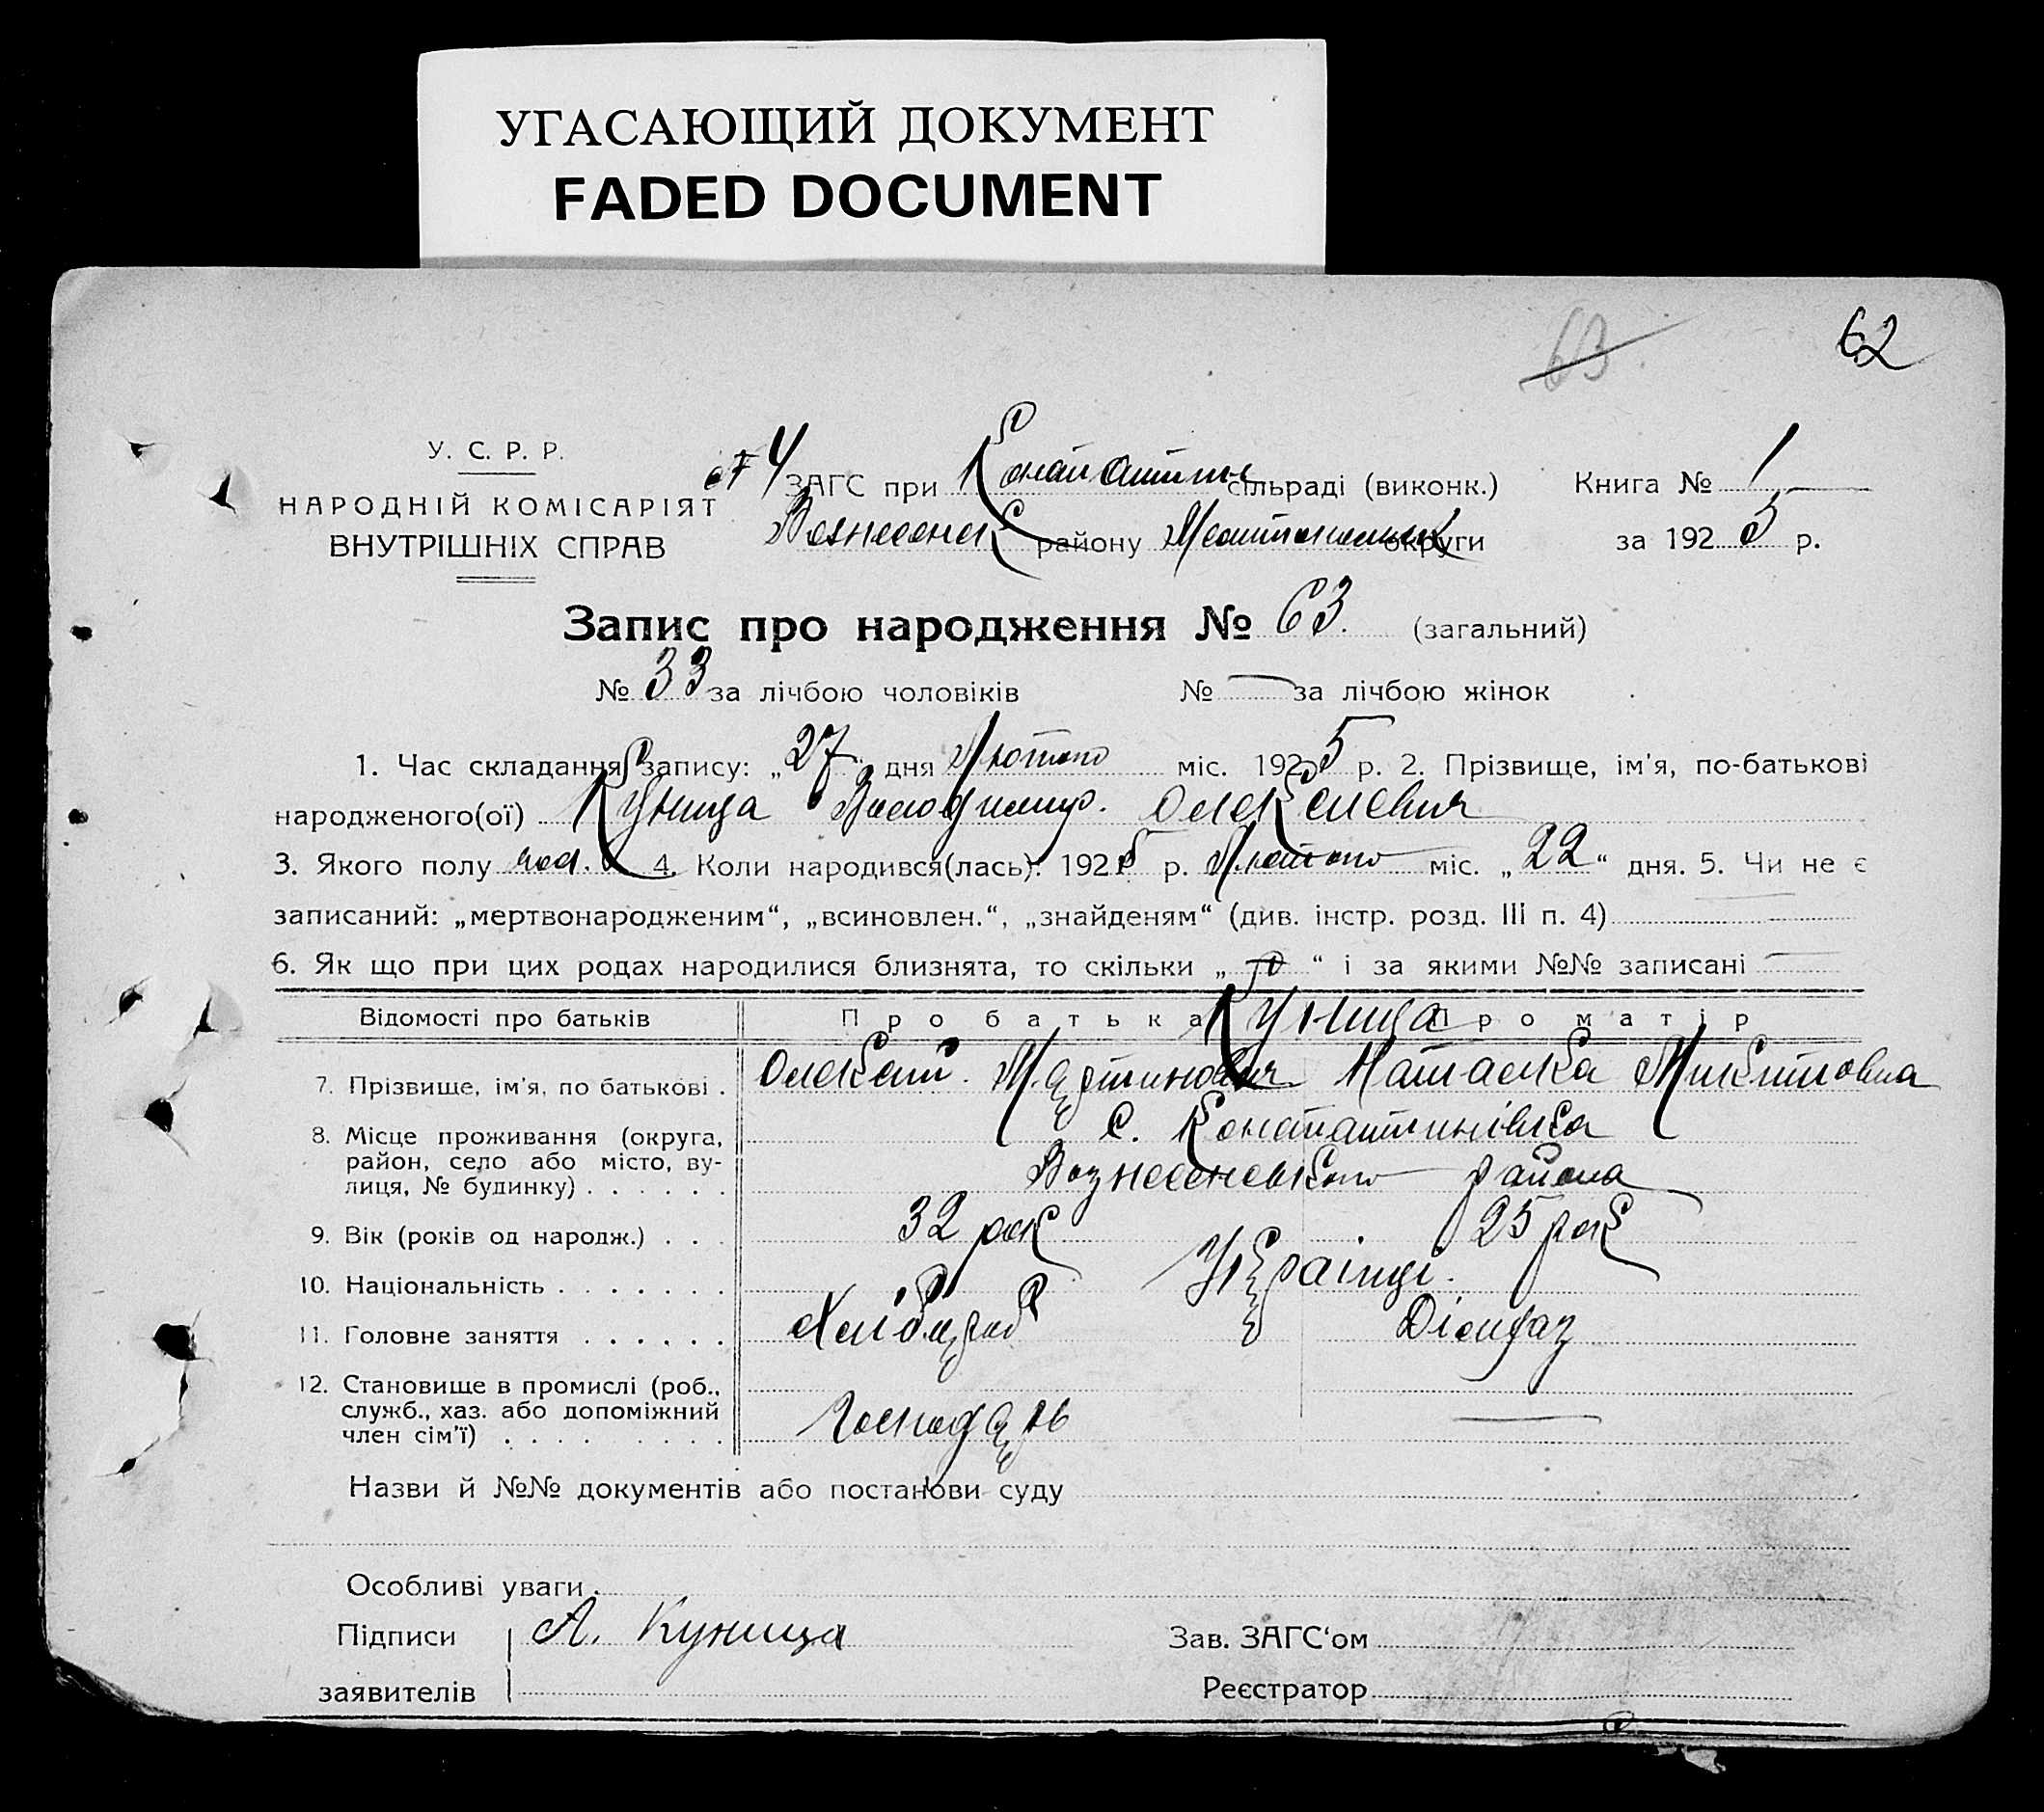 УГАСАЮЩИЙ ДОКУМЕНТ
FADED DOCUMENT
63
62
У. С. Р. Р.
НАРОДНІЙ КОМІСАРІЯТ
ВНУТРІШНІХ СПРАВ
ЗАГС при Констаитин сільраді (виконк.)
Вознесенск району округи
Книга № 1
за 1925 р.
Запис про народження № 63. (загальний)
№ 33 за лічбою чоловіків № — за лічбою жінок
1. Час складання запису: „27“ дня Лютого міс. 1925 р. 2. Прізвище, ім'я, по-батькові
народженого(ої) Куница Володимир. Олексієвич
3. Якого полу чол. 4. Коли народився(лась): 1925 р. Лютого міс. „22“ дня. 5. Чи не є
записаний: „мертвонародженим“, „всиновлен.“, „знайденям“ (див. інстр. розд. III п. 4)
6. Як що при цих родах народилися близнята, то скільки „ “ і за якими №№ записані —
Відомості про батьків Про батька Куница Про матір
7. Прізвище, ім'я, по батькові . Олексій Мартинович Наталка Микитовна
8. Місце проживання (округа, район, село або місто, вулиця, № будинку) . . . . . . с. Констаитинівка
Вознесенського района
9. Вік (років од народж.) . . . 32 рок 25 рок
10. Національність . . . . . . . Українці.
11. Головне заняття . . . . . . Хлібороб
12. Становище в промислі (роб., служб., хаз. або допоміжний член сім'ї) . . . . . . . . Господарь —
Назви й №№ документів або постанови суду
Особливі уваги.
Підписи А. Куница Зав. ЗАГС‘ом
заявителів Реєстратор